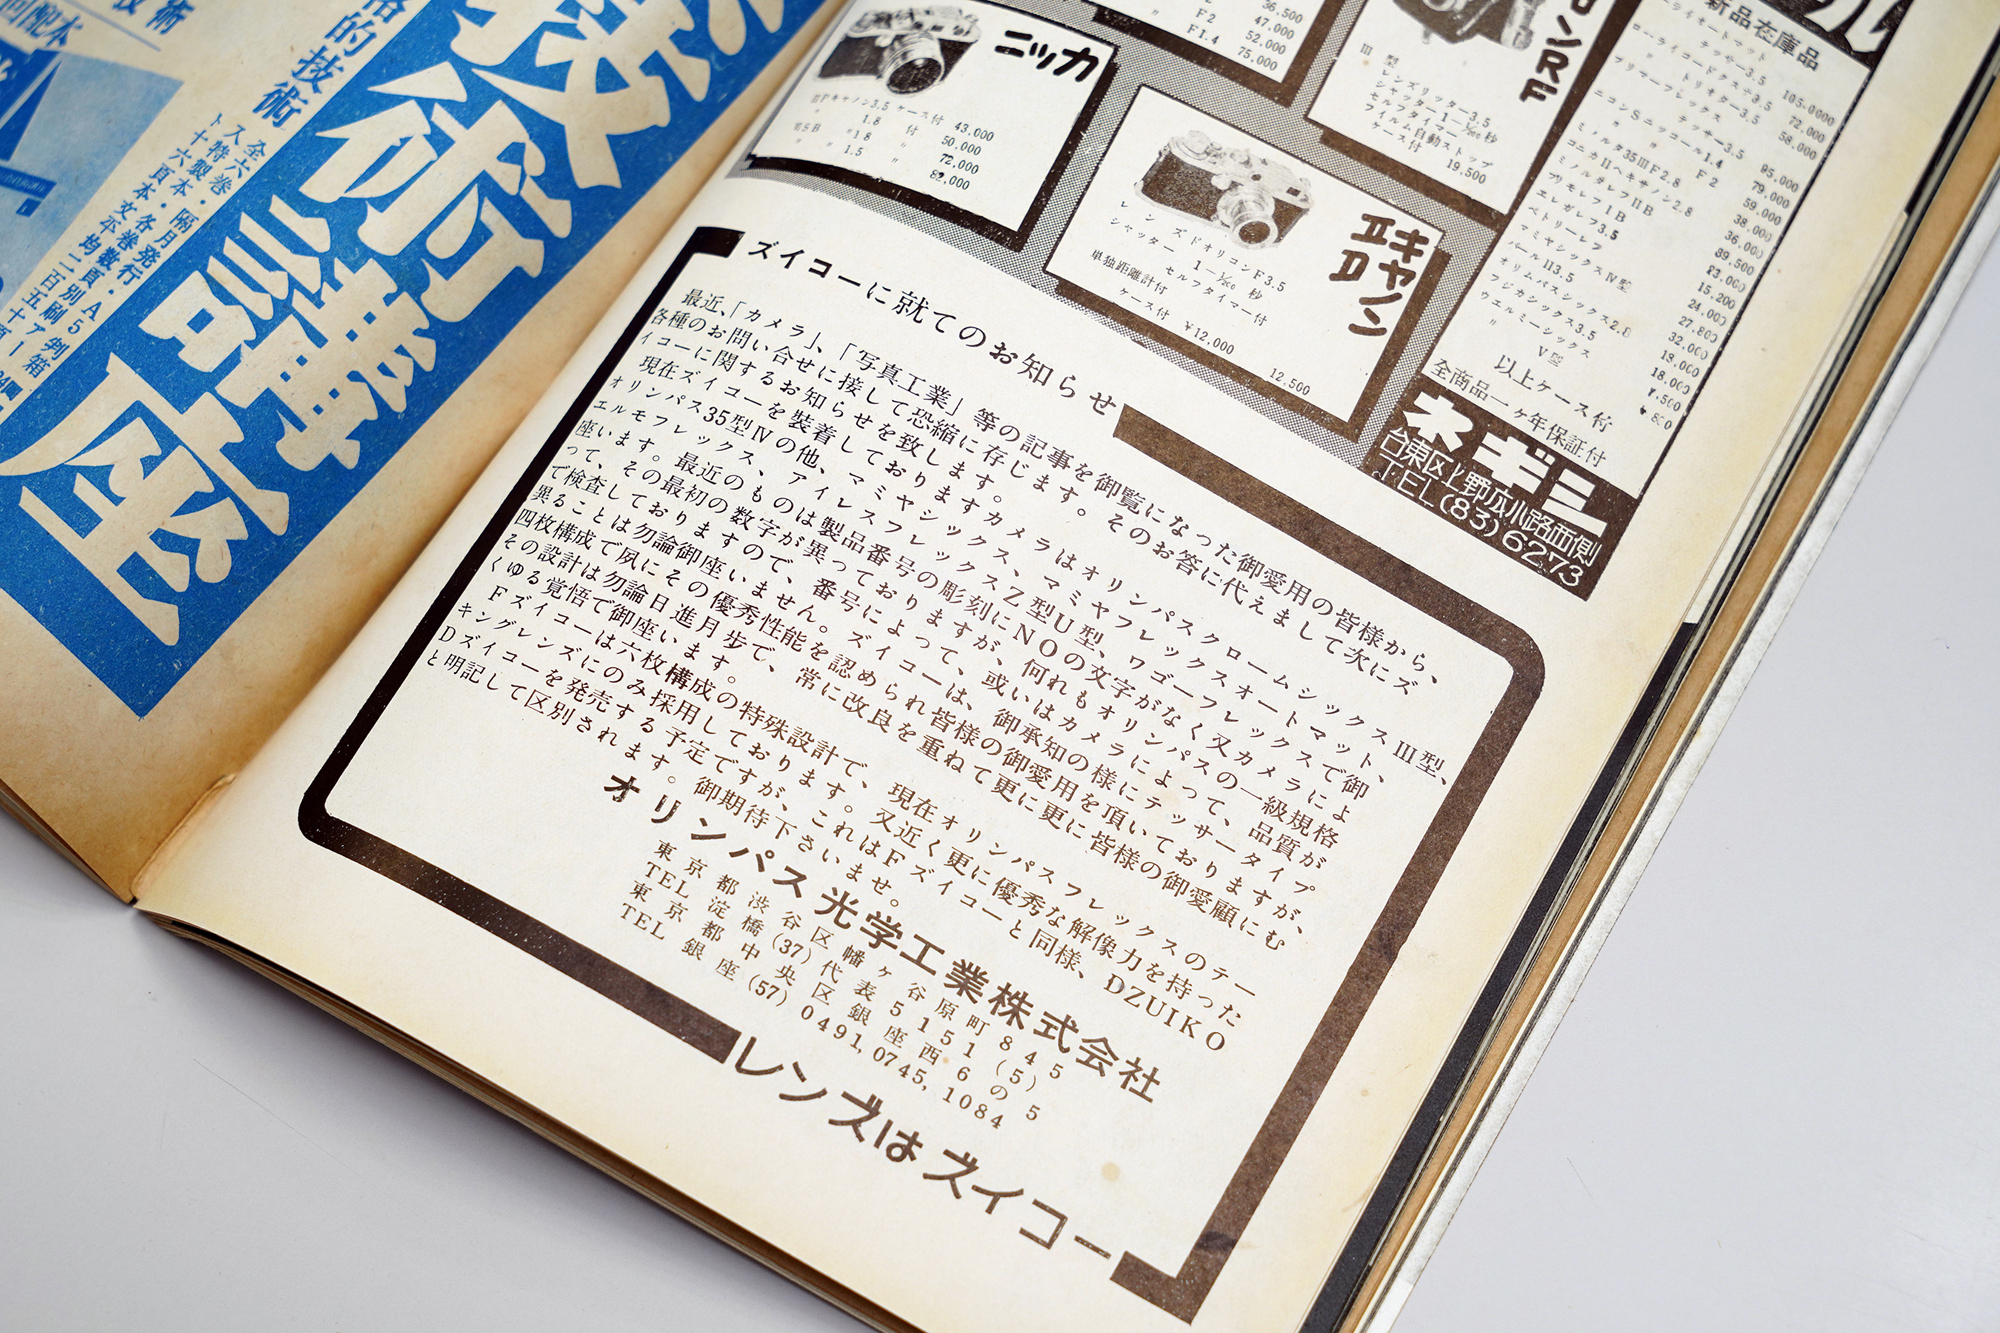 技術
回配本
格的技術
技術講座
全六巻・隔月発行・A5判箱
ス特製本・各巻数頁別刷アー
ト十六頁本文平均二百五十頁
F2
F1.4
36.500
47.000
52.000
75.000
ニッカ
キヤノン3.5 ケース付 43.000
〃 1.8 付 50.000
〃1.8 〃 72.000
〃 1.5 〃 82.000
ンRF
III 型
レンズリッター3.5
セルフタイマー付
フィルム自動ストップ
ケース付 19.500
キヤノン
IID
レンズドオリコンF3.5
セルフタイマー付
単独距離計付
ケース付 ¥12,000
12.500
新品在庫品
テッサー3.5
トリオター3.5
テッサー3.5
ニコンSニッコール1.4
〃 F2
ミノルタ35IIIF2.8
コニカIIヘキサノン2.8
プリモレフIB
エルガレフ3.5
ペトリーレフ
マミヤシックスIV型
パールII3.5
オリムパスシックス2.8
フジカシックス3.5
ウエルミーシックス
〃 V型
以上ケース付
全商品一ヶ年保証付
ネギシ
台東区上野広小路西側
TEL(83)6273
ズイコーに就てのお知らせ
最近、「カメラ」、「写真工業」等の記事を御覧になった御愛用の皆様から、
各種のお問い合せに接して恐縮に存じます。そのお答に代えまして次にズ
イコーに関するお知らせを致します。
現在ズイコーを装着しておりますカメラはオリンパスクロームシックスIII型、
オリンパス35型IVの他、マミヤシックス、マミヤフレックスオートマット、
エルモフレックス、アイレスフレックスZ型U型、ワゴーフレックスで御
座います。最近のものは製品番号の彫刻にNOの文字がなく又カメラによ
って、その最初の数字が異っておりますが、何れもオリンパスの一級規格
で検査しておりますので、番号によって、或いはカメラによって、品質が
異ることは勿論御座いません。ズイコーは、御承知の様にテッサータイプ
四枚構成で夙にその優秀性能を認められ皆様の御愛用を頂いておりますが、
その設計は勿論日進月歩で、常に改良を重ねて更に更に皆様の御愛顧にむ
くゆる覚悟で御座います。
Fズイコーは六枚構成の特殊設計で、現在オリンパスフレックスのテー
キングレンズにのみ採用しております。又近く更に優秀な解像力を持った
Dズイコーを発売する予定ですが、これはFズイコーと同様、DZUIKO
と明記して区別されます。御期待下さいませ。
オリンパス光学工業株式会社
東京都渋谷区幡ヶ谷原町845
TEL 淀橋(37)代表5151(5)
東京都中央区銀座西6の5
TEL 銀座(57)0491,0745,1084
レンズはズイコー